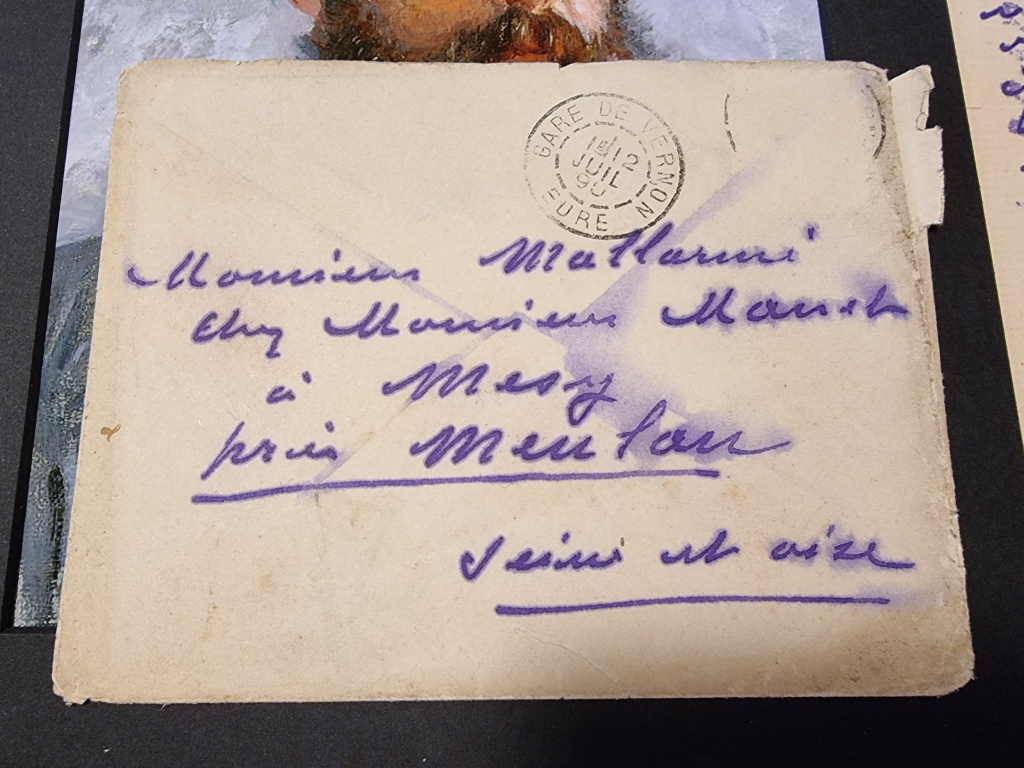 GARE DE VERNON
12
JUIL
90
EURE
Monsieur Mallarmé
chez Monsieur Manet
à Mesy
près Meulan
Seine et oise